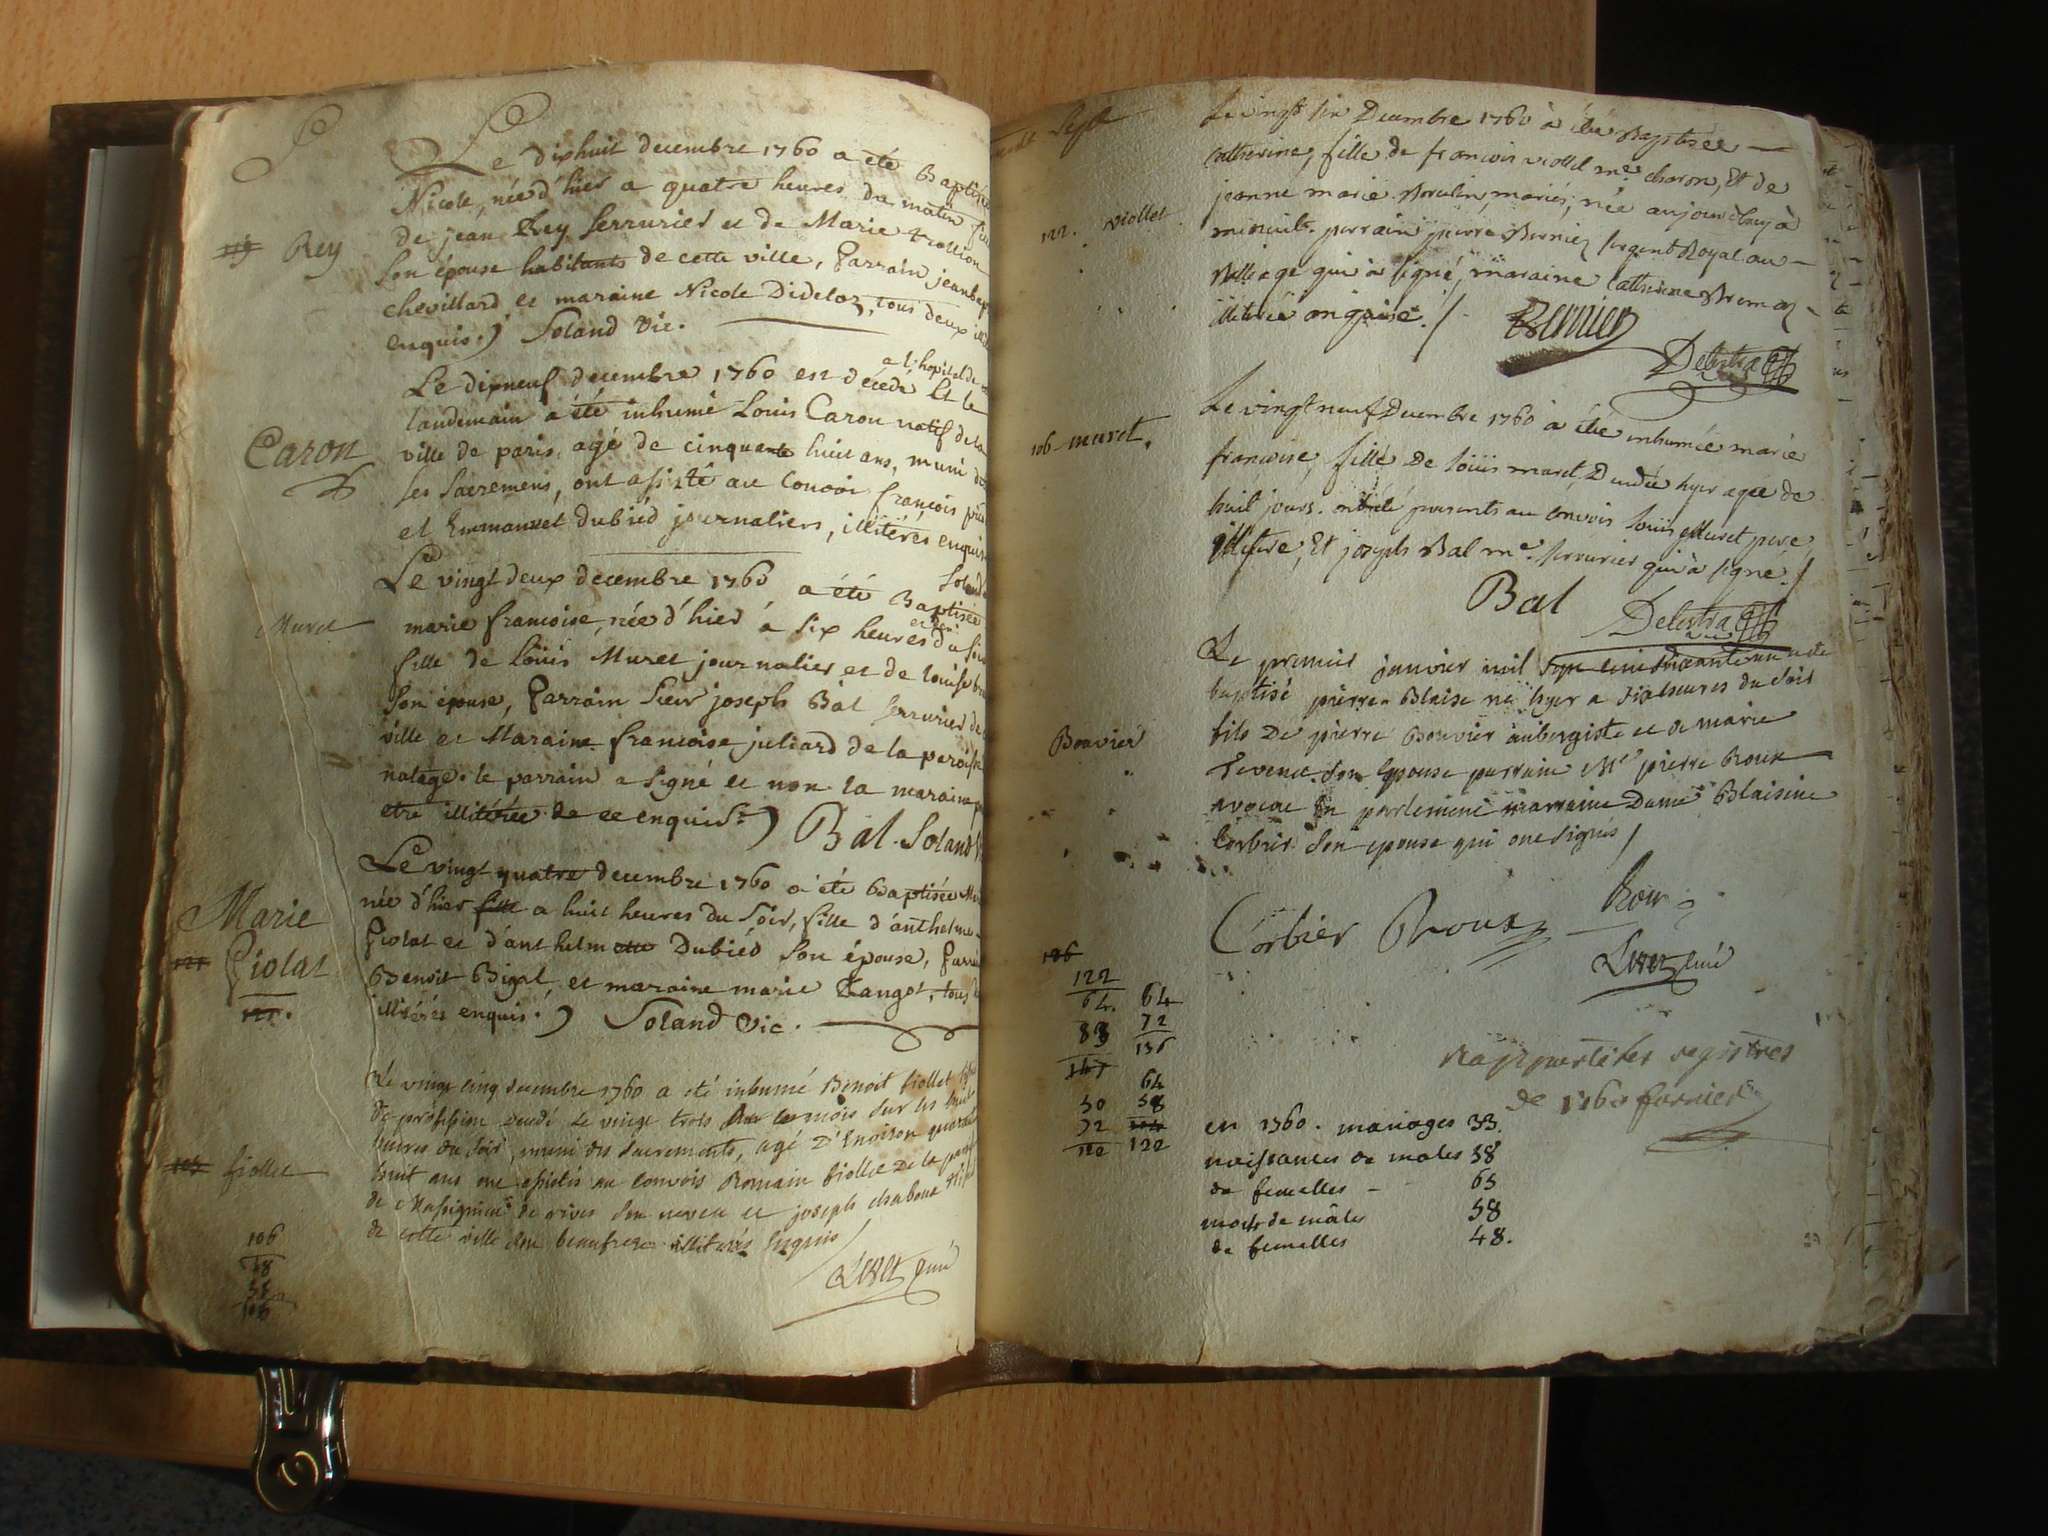 Le
Le dixhuit decembre 1760 a été Baptisée
Nicole, née d'hier a quatre heures du matin
119 Rey
de jean Rey Serrurier et de Marie
Son épouse habitants de cette ville, Parrain jean
chevillard et maraine Nicole Dideloz, tous deux
enquis.) Soland Vic.
a l'hopital de
Le dixneuf decembre 1760 est décédé Et le
landemain a été inhumé Louis Caron natif de la
Caron
ville de paris, agé de cinquante huit ans, muni des
ses Sacremens, ont assisté au Convoi françois
et Emmanuel dubiéd journaliers, illitérés enquis
Soland
Le vingt deux decembre 1760 a été Baptisée
Muret
marie francoise, née d'hier à six heures du soir
fille de Loüis Muret journalier et de Loüise
Son épouse, Parrain Sieur joseph Bal Serrurier de
ville et Maraine francoise juliard de la paroisse
natage. le parrain a signé et non la maraine
etre illitérée de ce enquise.) Bal. Soland
Le vingt quatre decembre 1760 a été Baptisée
Marie
née d'hier fille a huit heures du Soir, fille d'anthelme
Piolat
121
Piolat et d'anthelmette Dubiéd Son épouse,
Benoit Bigat, et maraine marie Tangot, tous
illitérés enquis.) Soland Vic.
Le vingt cinq decembre 1760 a eté inhumé Benoit fiollet
de profession decedé le vingt trois du mois sur les huit
heures du Soir, muni des Sacrements, agé D'Environ quarante
105 fiollet
huit ans ont assistés au convois Romain fiollet De la
de Massignieu de rives Son neveu et joseph chaboud
de cette ville Son beaufrere illiterés Enquis
Livet curé
106
58
106
Sept
Le vingt six Decembre 1760 à été Baptisée
Catherine, fille de francois viollet me. charon, Et de
jeanne marie Moulin, mariés, née aujourdhuy à
122. viollet
minuit. parrain pierre Bernier sergent Royal au
Balliage qui à signé, maraine Catherine
illiterée enquise./.
Bernier
Delestra
Le vingt neuf Decembre 1760 à été inhumée marie
106 muret.
francoise, fille De loüis muret, Decedée hyer agée de
huit jours. ont été presents au convois loüis Muret pere
illiteré, Et joseph Bal me. serrurier qui à signé./
Bal Delestra
Le premier janvier mil sept cent soixante un a été
baptisé pierre Blaise né hyer a six heures du soir
Bouvier
fils De pierre Bouvier aubergiste et de marie
Tevenet Son Epouse parrain Mr pierre Roux
avocat En parlement marraine Dame Blaisine
Corbier Son epouse qui ont signés /
Corbier Roux
Livet curé
126
122
64. 64
83 72
147 136
64
50 58
72
122 122
Rapporté les registres
de 1760 fornier
en 1760. mariages 33.
naissances de males 58
de femelles - 65
morts de mâles 58
de femelles 48.